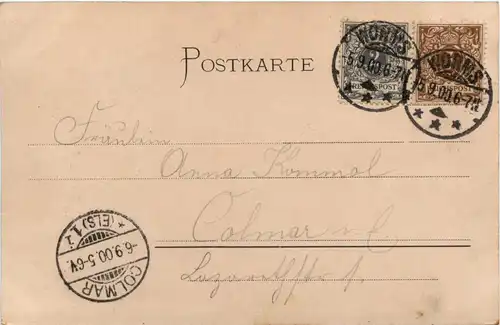 POSTKARTE
WORMS
5.9.00.6-7N
WORMS
5.9.00.6-7N
Fräulein
Anna Kommal
Colmar i. E.
COLMAR
-6.9.00.5-6V.
(ELS)1.